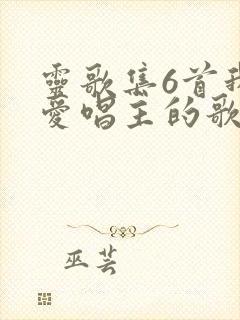 靈歌集6首我
愛唱主的歌
巫芸